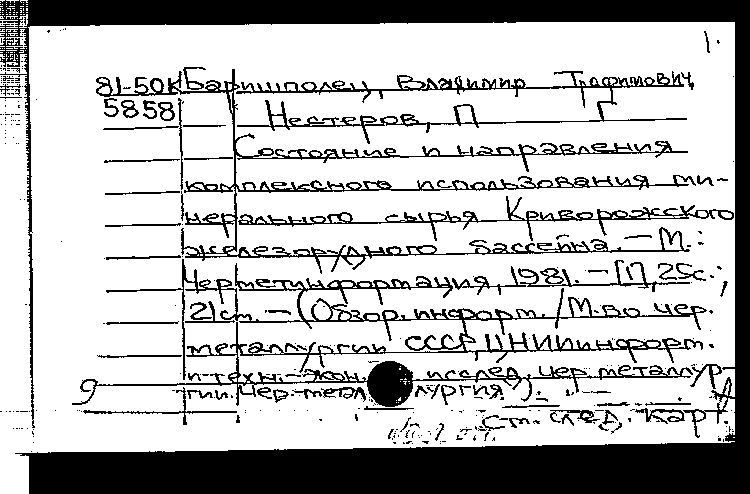 1.
81-50К Баришполец, Владимир Трофимович,
5858 Нестеров, П Г
Состояние и направления
комплексного использования ми-
нерального сырья Криворожского
железорудного бассейна. – М.:
Черметинформация, 1981. – [1], 25с.;
21см. – (Обзор. информ. / М-во чер.
металлургии СССР, ЦНИИинформ.
и техн.-экон. исслед. чер. металлур-
гии. Чер. метал лургия).
9 См. след. карт.